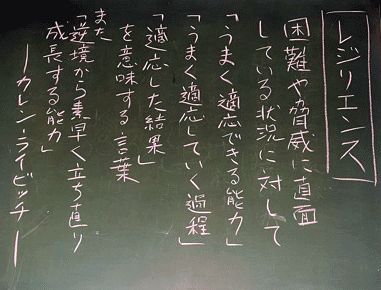 レジリエンス
困難や脅威に直面
している状況に対して
「うまく適応できる能力」
「うまく適応していく過程」
「適応した結果」
を意味する言葉
また
「逆境から素早く立ち直り
成長する能力」
―カレン・ライビッチ―